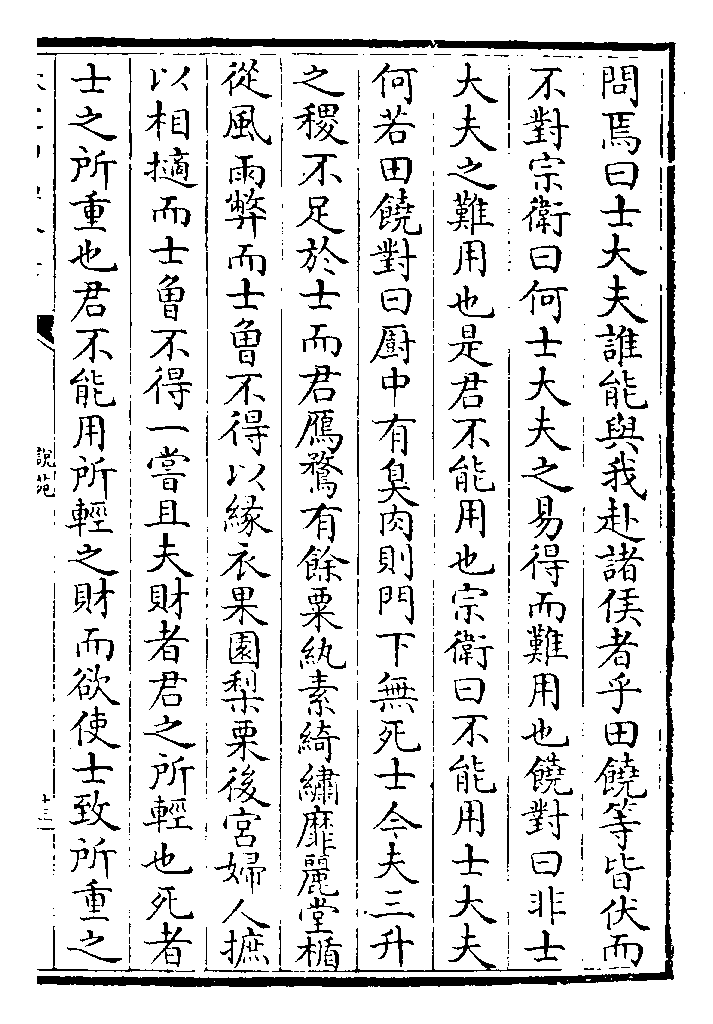 問焉曰士大夫誰能與我赴諸侯者乎田饒等皆伏而
不對宗衛曰何士大夫之易得而難用也饒對曰非士
大夫之難用也是君不能用也宗衛曰不能用士大夫
何若田饒對曰厨中有臭肉則門下無死士今夫三升
之稷不足於士而君鴈鶩有餘粟紈素綺繡靡麗堂楯
從風雨弊而士曾不得以緣衣果園梨栗後宮婦人摭
以相擿而士曾不得一嘗且夫財者君之所輕也死者
士之所重也君不能用所輕之財而欲使士致所重之
說苑